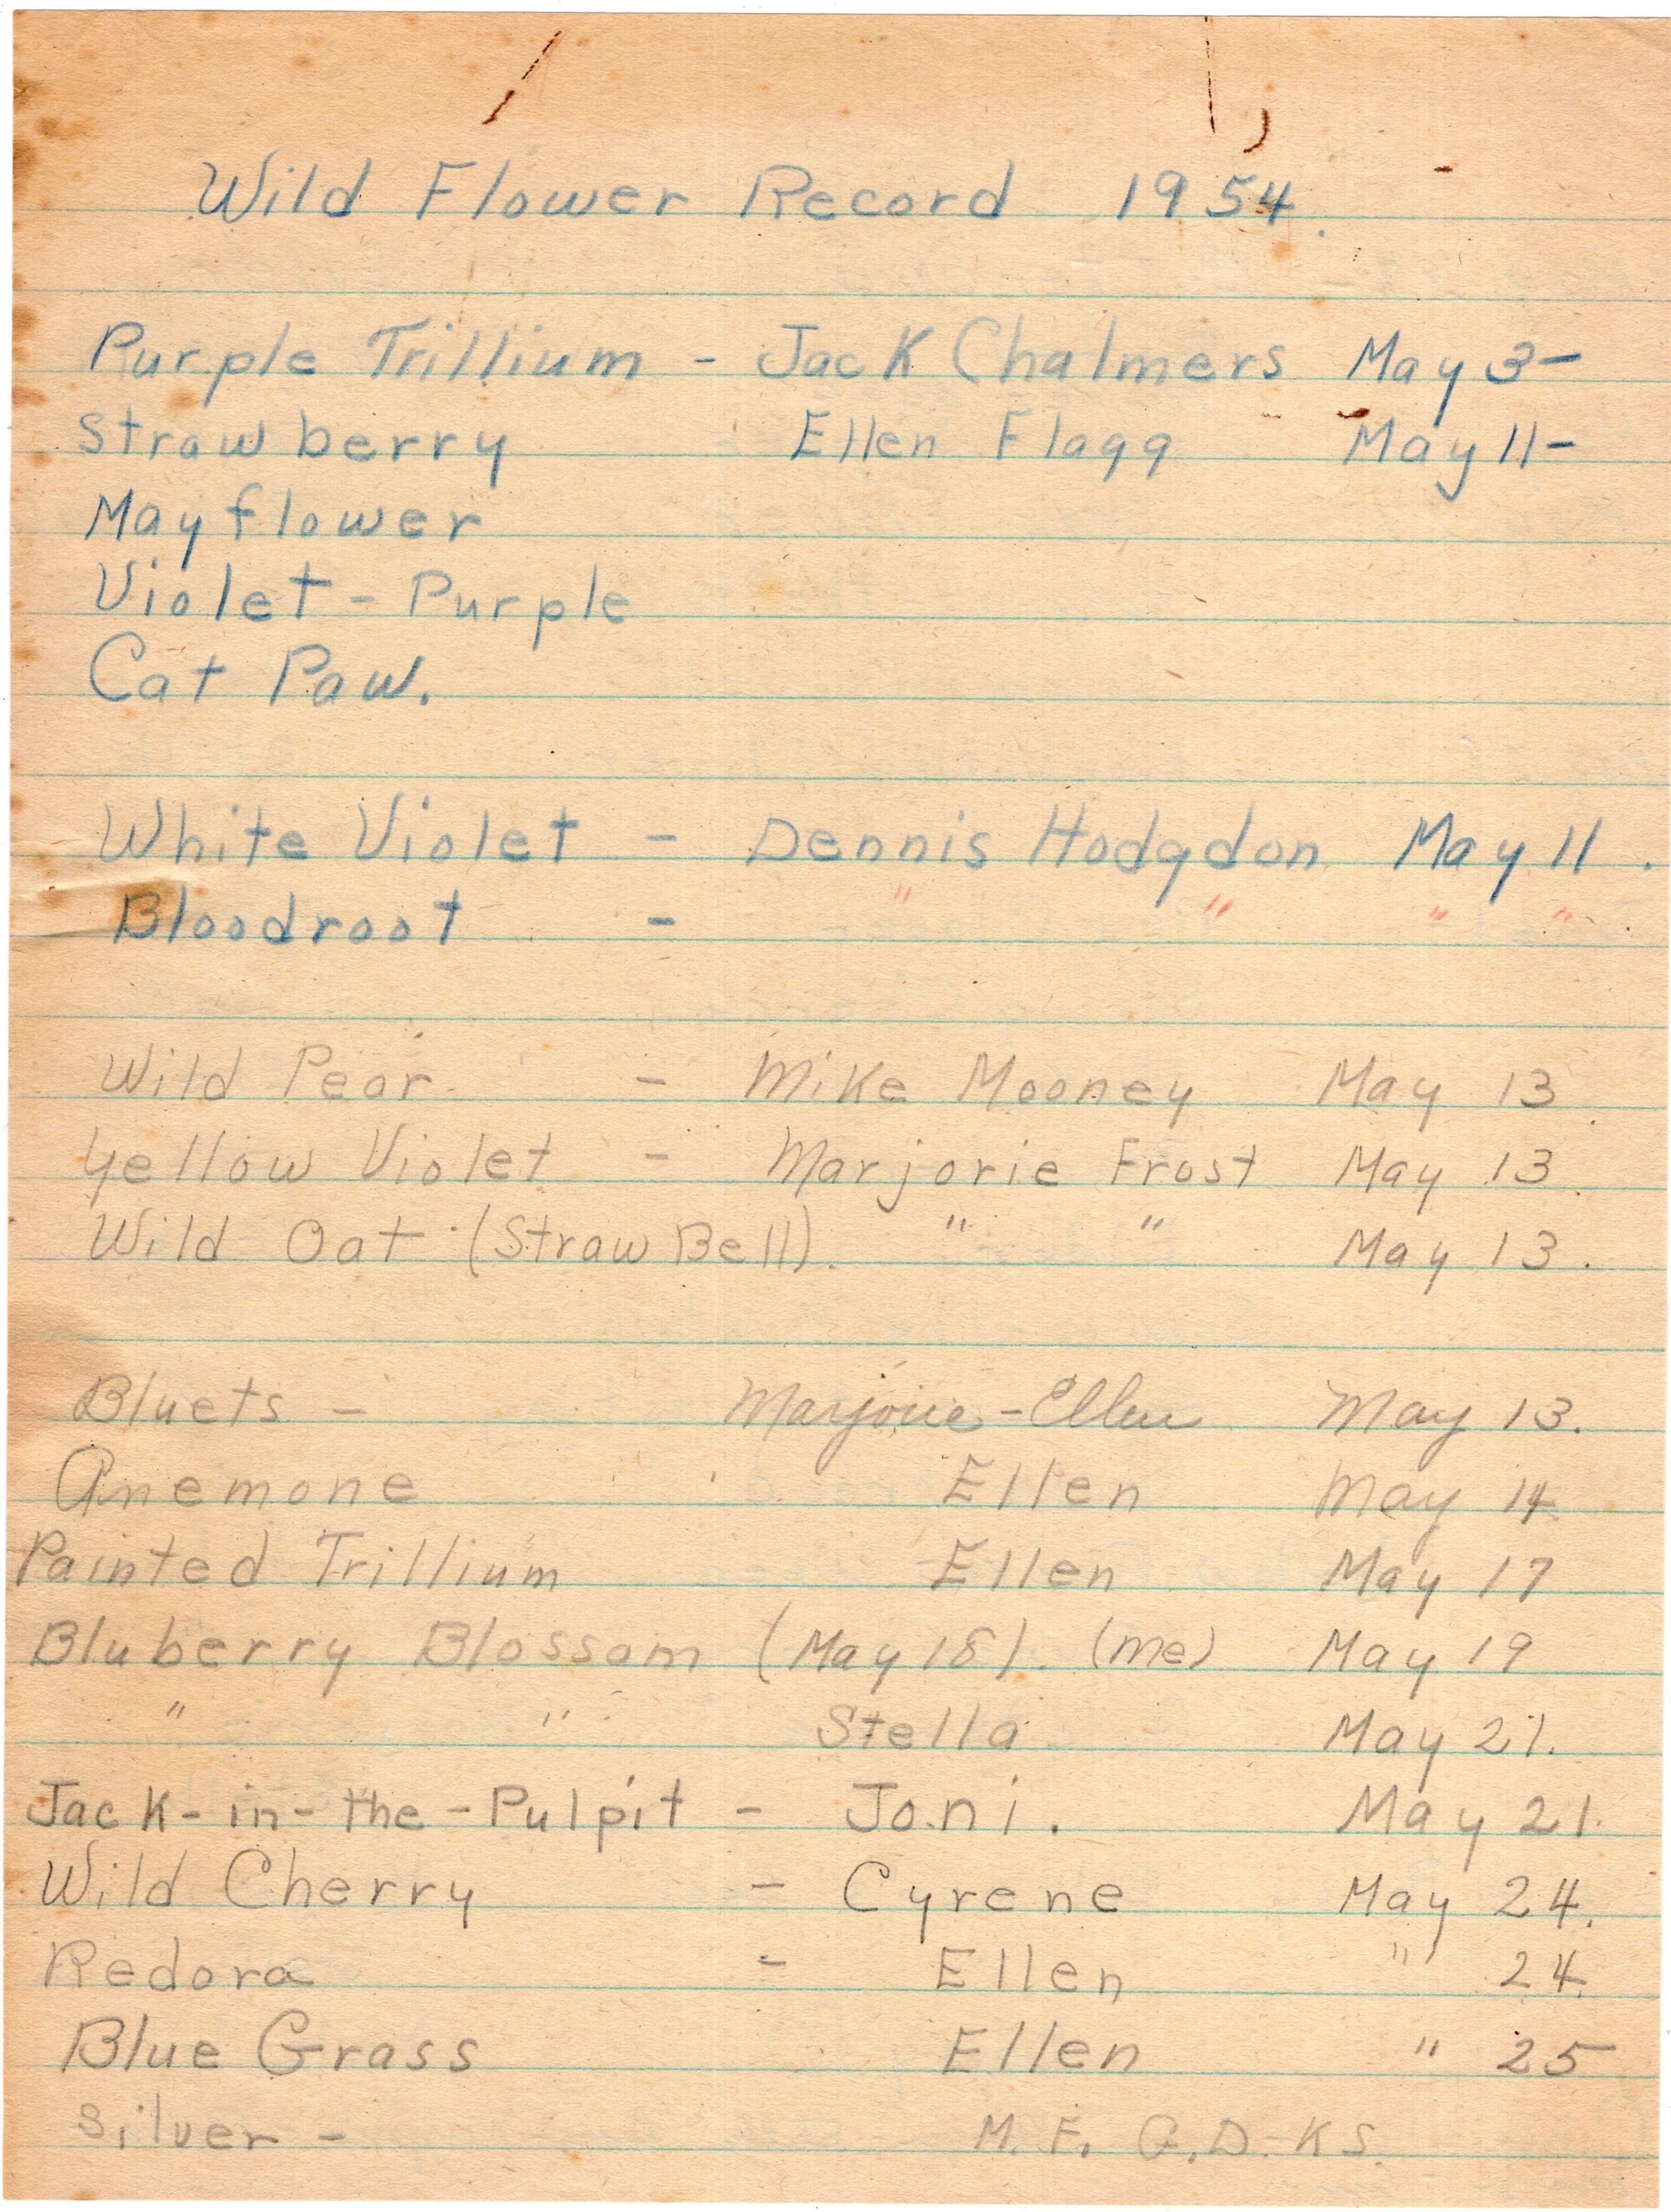 Wild Flower Record 1954.
Purple Trillium - Jack Chalmers May 3-
Strawberry Ellen Flagg May 11-
Mayflower
Violet - Purple
Cat Paw.
White Violet - Dennis Hodgdon May 11.
Bloodroot - " " " "
Wild Pear - Mike Mooney May 13.
Yellow Violet - Marjorie Frost May 13.
Wild Oat (Straw Bell). " " May 13.
Bluets - Marjorie - Ellen May 13.
Anemone Ellen May 14
Painted Trillium Ellen May 17
Bluberry Blossom (May 18). (me) May 19
" " Stella May 21.
Jack-in-the-Pulpit - Joni. May 21.
Wild Cherry - Cyrene May 24.
Redora - Ellen " 24.
Blue Grass Ellen " 25
Silver - M. F. D. K S.